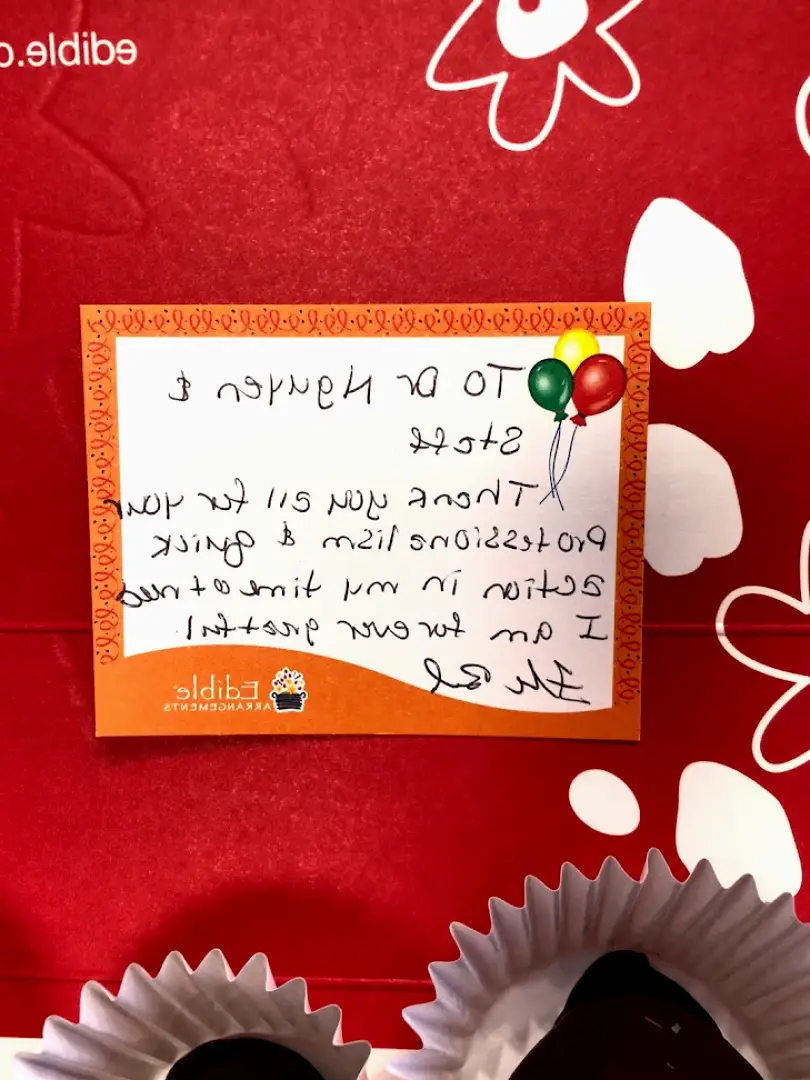 edible.c
TO Dr Nguyen &
Staff
Thank you all for your
Professionalism & quick
action in my time of need
I am forever greatful.
Edible
ARRANGEMENTS